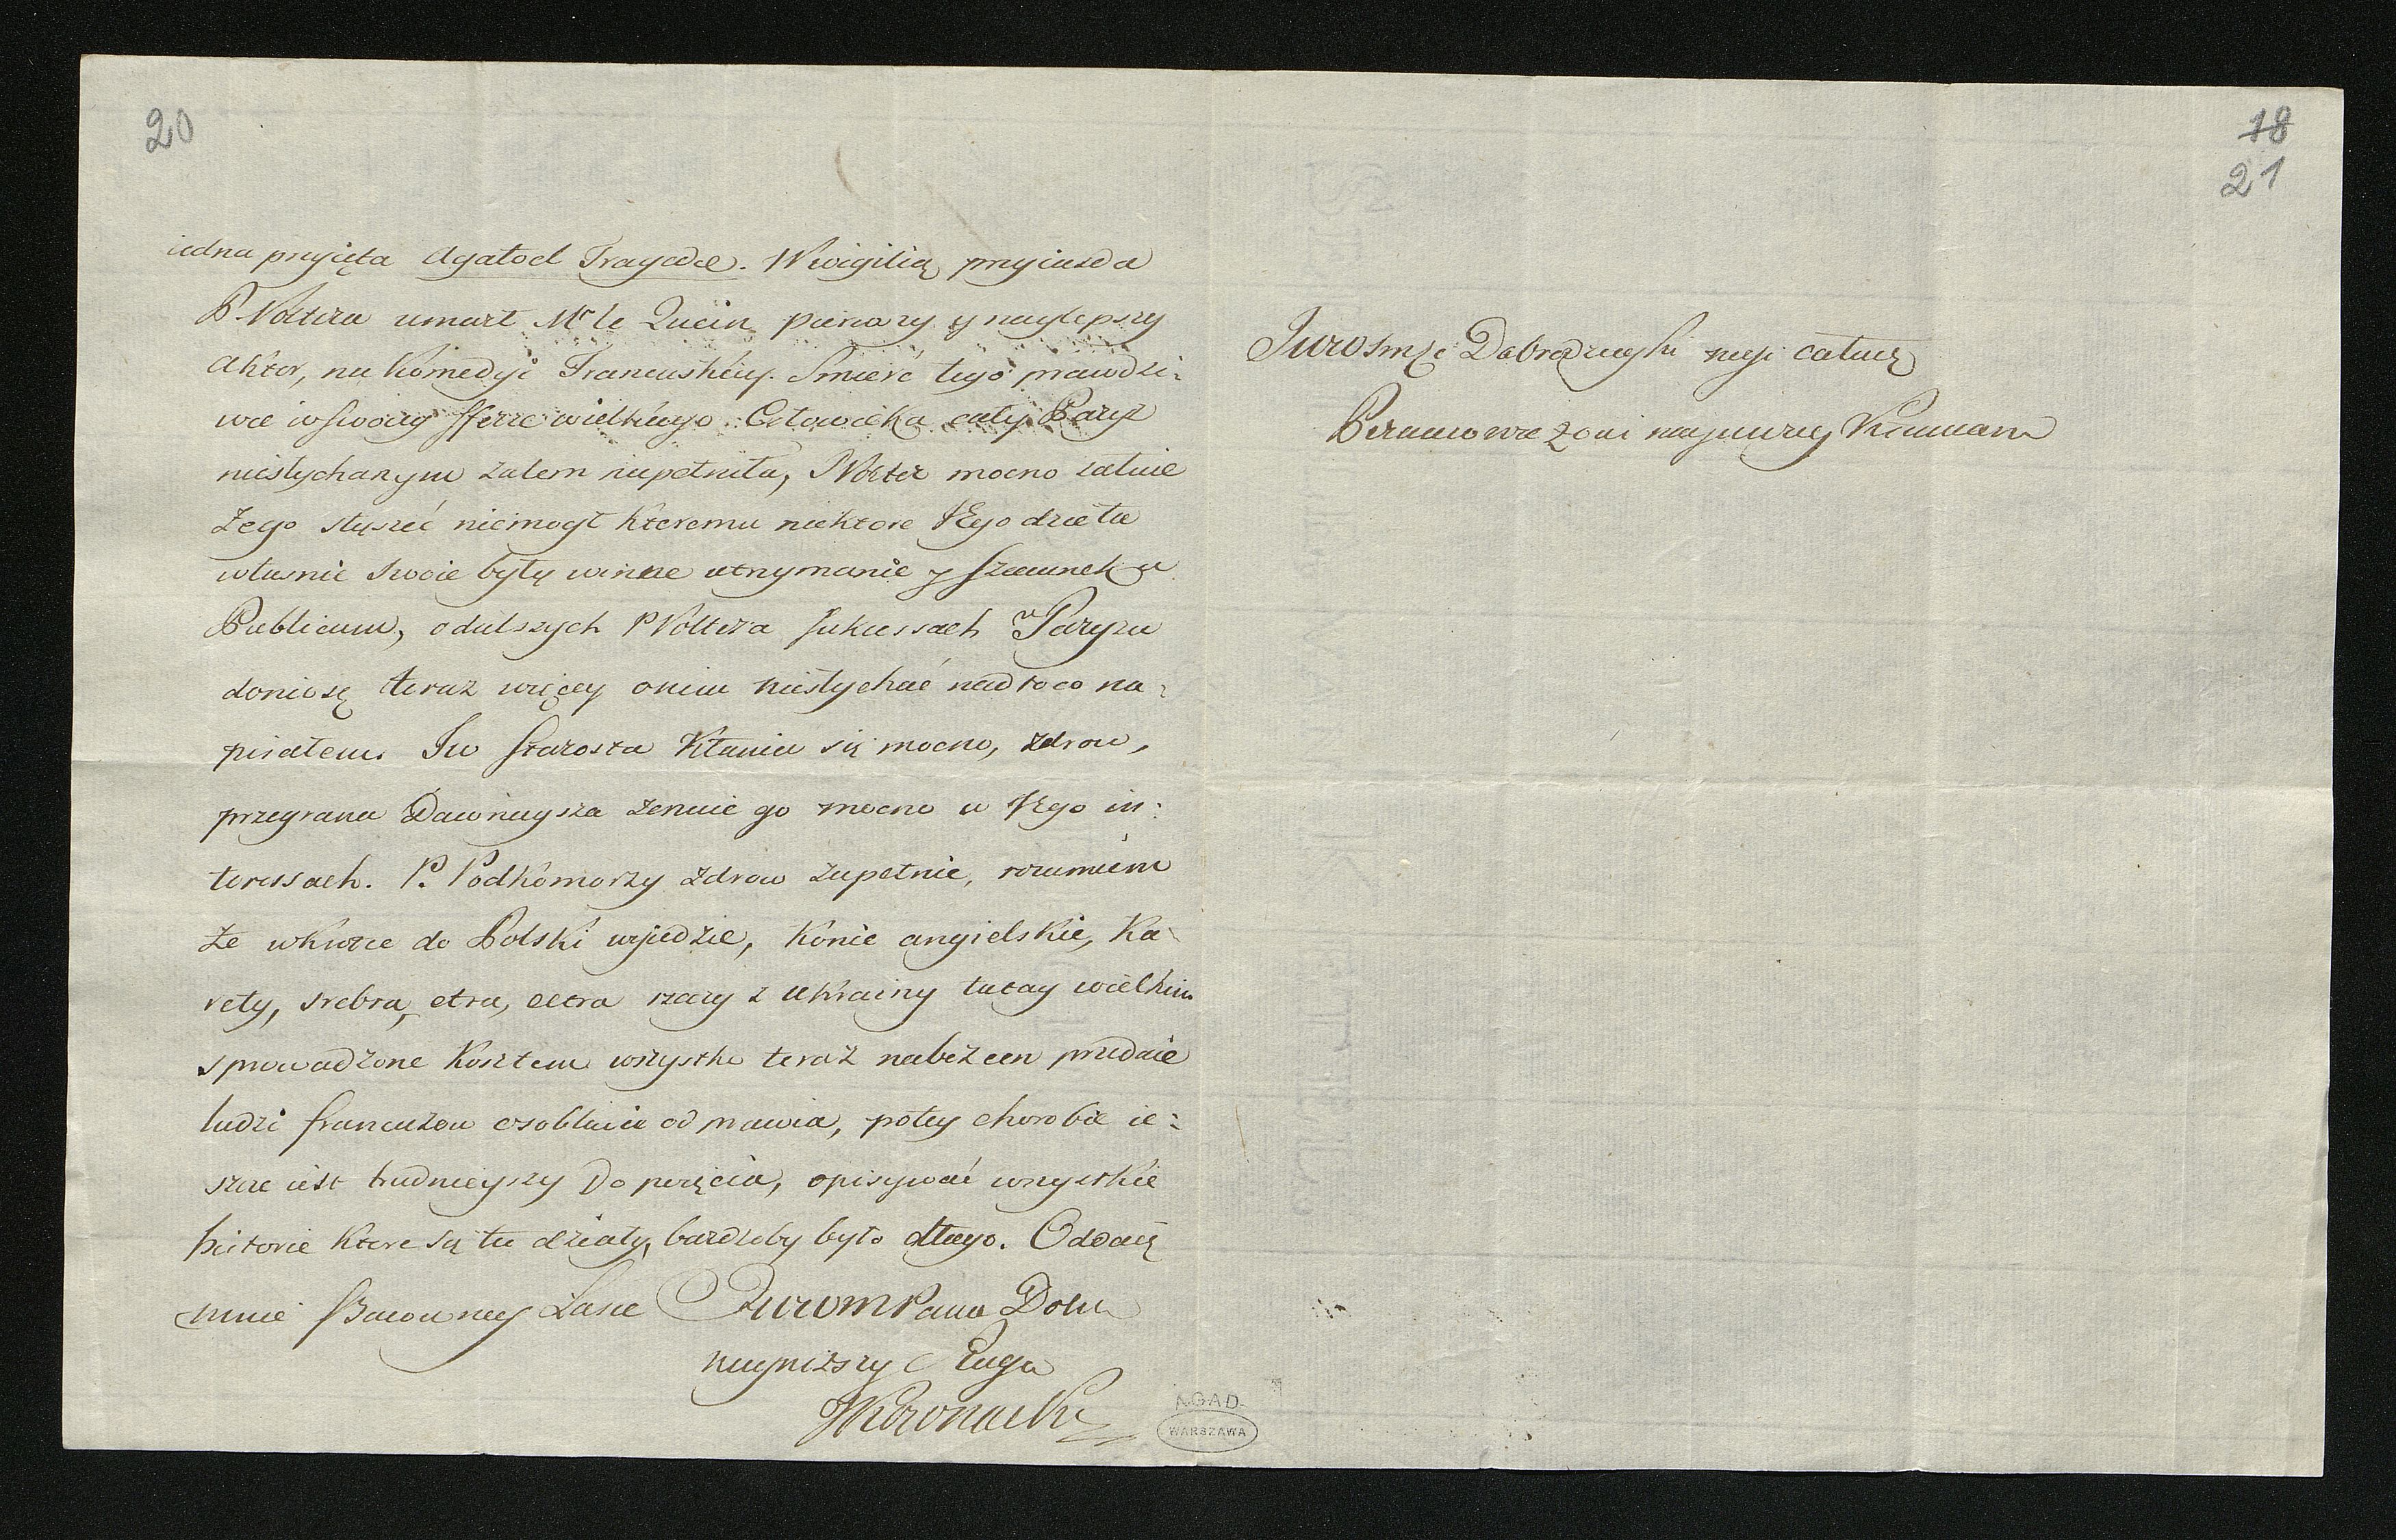 20
iedna przyięta Agatocl Tragedie. W wigilią przyiazda
P. Voltera umarł Mr le Quein pierwszy y naylepszy
Aktor, na Komedyi Francuskiey. Smierć tego prawdzi-
wie w swoiey sferze wielkiego Człowieka cały Paryż
niesłychanym żalem napełniła, Volter mocno żałuie
że go słyszeć niemogł ktoremu niektore Jego dzieła
własnie swoie były winne utrzymanie y szacunek u
Publicum, o dalszych P Voltera sukcessach w Paryżu
doniosę teraz więcey o nim niesłychać nad to co na-
pisałem. Jw Starosta Kłania się mocno, zdrow,
przegrana Dawnieysza żenuie go mocno w Jego in:
teressach. P. Podkomorzy zdrow zupełnie, rozumiem
że wkrotce do Polski wyiedzie, Konie angielskie, Ka-
rety, srebra, etra, etra rzeczy z Ukrainy tutay wielkim
sprowadzone Kosztem wszystko teraz za bezcen przedaie
ludzi francuzow osobliwie odprawia, po tey chorobie ie:
szcze iest trudnieyszy do pożycia, opisywać wszystkie
historie ktore się tu działy, bardzoby było długo. Oddaię
mnie Pańskiey Łasce Jwwm Pana Dobr
nayniższy Sługa
18
21
Dobrodzieyki nogi całuię
AGAD
WARSZAWA